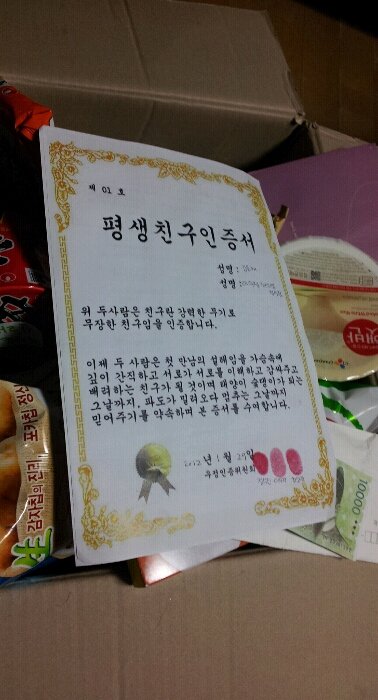 제 01 호
평생친구인증서
성명 :
성명 :
위 두사람은 친구란 강력한 무기로
무장한 친구임을 인증합니다.
이제 두 사람은 첫 만남의 설레임을 가슴속에
깊이 간직하고 서로가 서로를 이해하고 감싸주고
배려하는 친구가 될 것이며 태양이 술덩이가 되는
그날까지, 파도가 밀려오다 멈추는 그날까지
믿어주기를 약속하며 본 증서를 수여합니다.
2012 년 1 월 29일
우정인증위원회
포카칩 정신
감자칩의 진리
生
햇반
CJ
10000